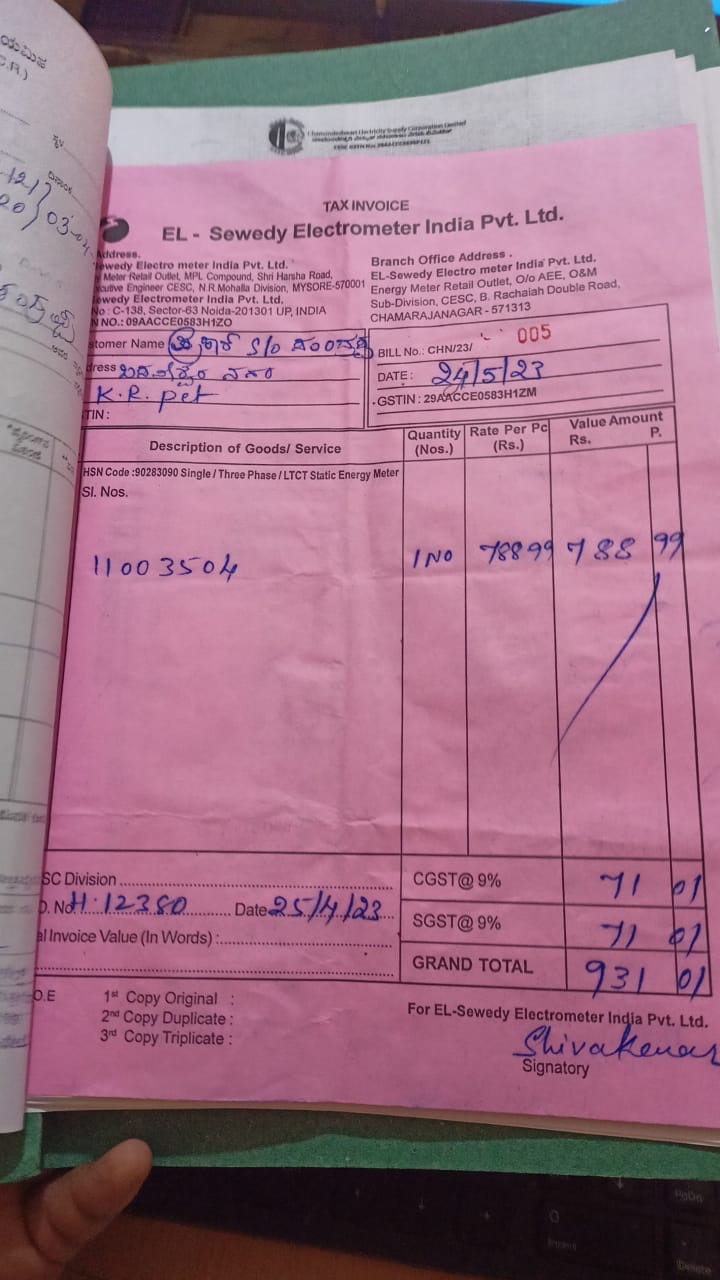 Chamundeshwari Electricity Supply Corporation Limited
TAX INVOICE
EL - Sewedy Electrometer India Pvt. Ltd.
Address.
ewedy Electro meter India Pvt. Ltd.
Meter Retail Outlet, MPL Compound, Shri Harsha Road,
cutive Engineer CESC, N.R.Mohalla Division, MYSORE-570001
ewedy Electrometer India Pvt. Ltd.
No : C-138, Sector-63 Noida-201301 UP, INDIA
N NO.: 09AACCE0583H1ZO
Branch Office Address .
EL-Sewedy Electro meter India Pvt. Ltd.
Energy Meter Retail Outlet, O/o AEE, O&M
Sub-Division, CESC, B. Rachaiah Double Road,
CHAMARAJANAGAR - 571313
stomer Name S/o
dress ನಗರ
K.R. pet
TIN :
BILL No.: CHN/23/ 005
DATE : 24/5/23
GSTIN : 29AACCE0583H1ZM
Description of Goods/ Service
Quantity (Nos.)
Rate Per Pc (Rs.)
Value Amount
Rs. P.
HSN Code :90283090 Single / Three Phase / LTCT Static Energy Meter
Sl. Nos.
11003504 1 No 788 99 788 99
SC Division
CGST@ 9% 71 01
D. No. H.12380 Date 25/4/23
SGST@ 9% 71 01
al Invoice Value (In Words) :
GRAND TOTAL 931 01
O.E
1st Copy Original :
2nd Copy Duplicate :
3rd Copy Triplicate :
For EL-Sewedy Electrometer India Pvt. Ltd.
Shivakumar
Signatory